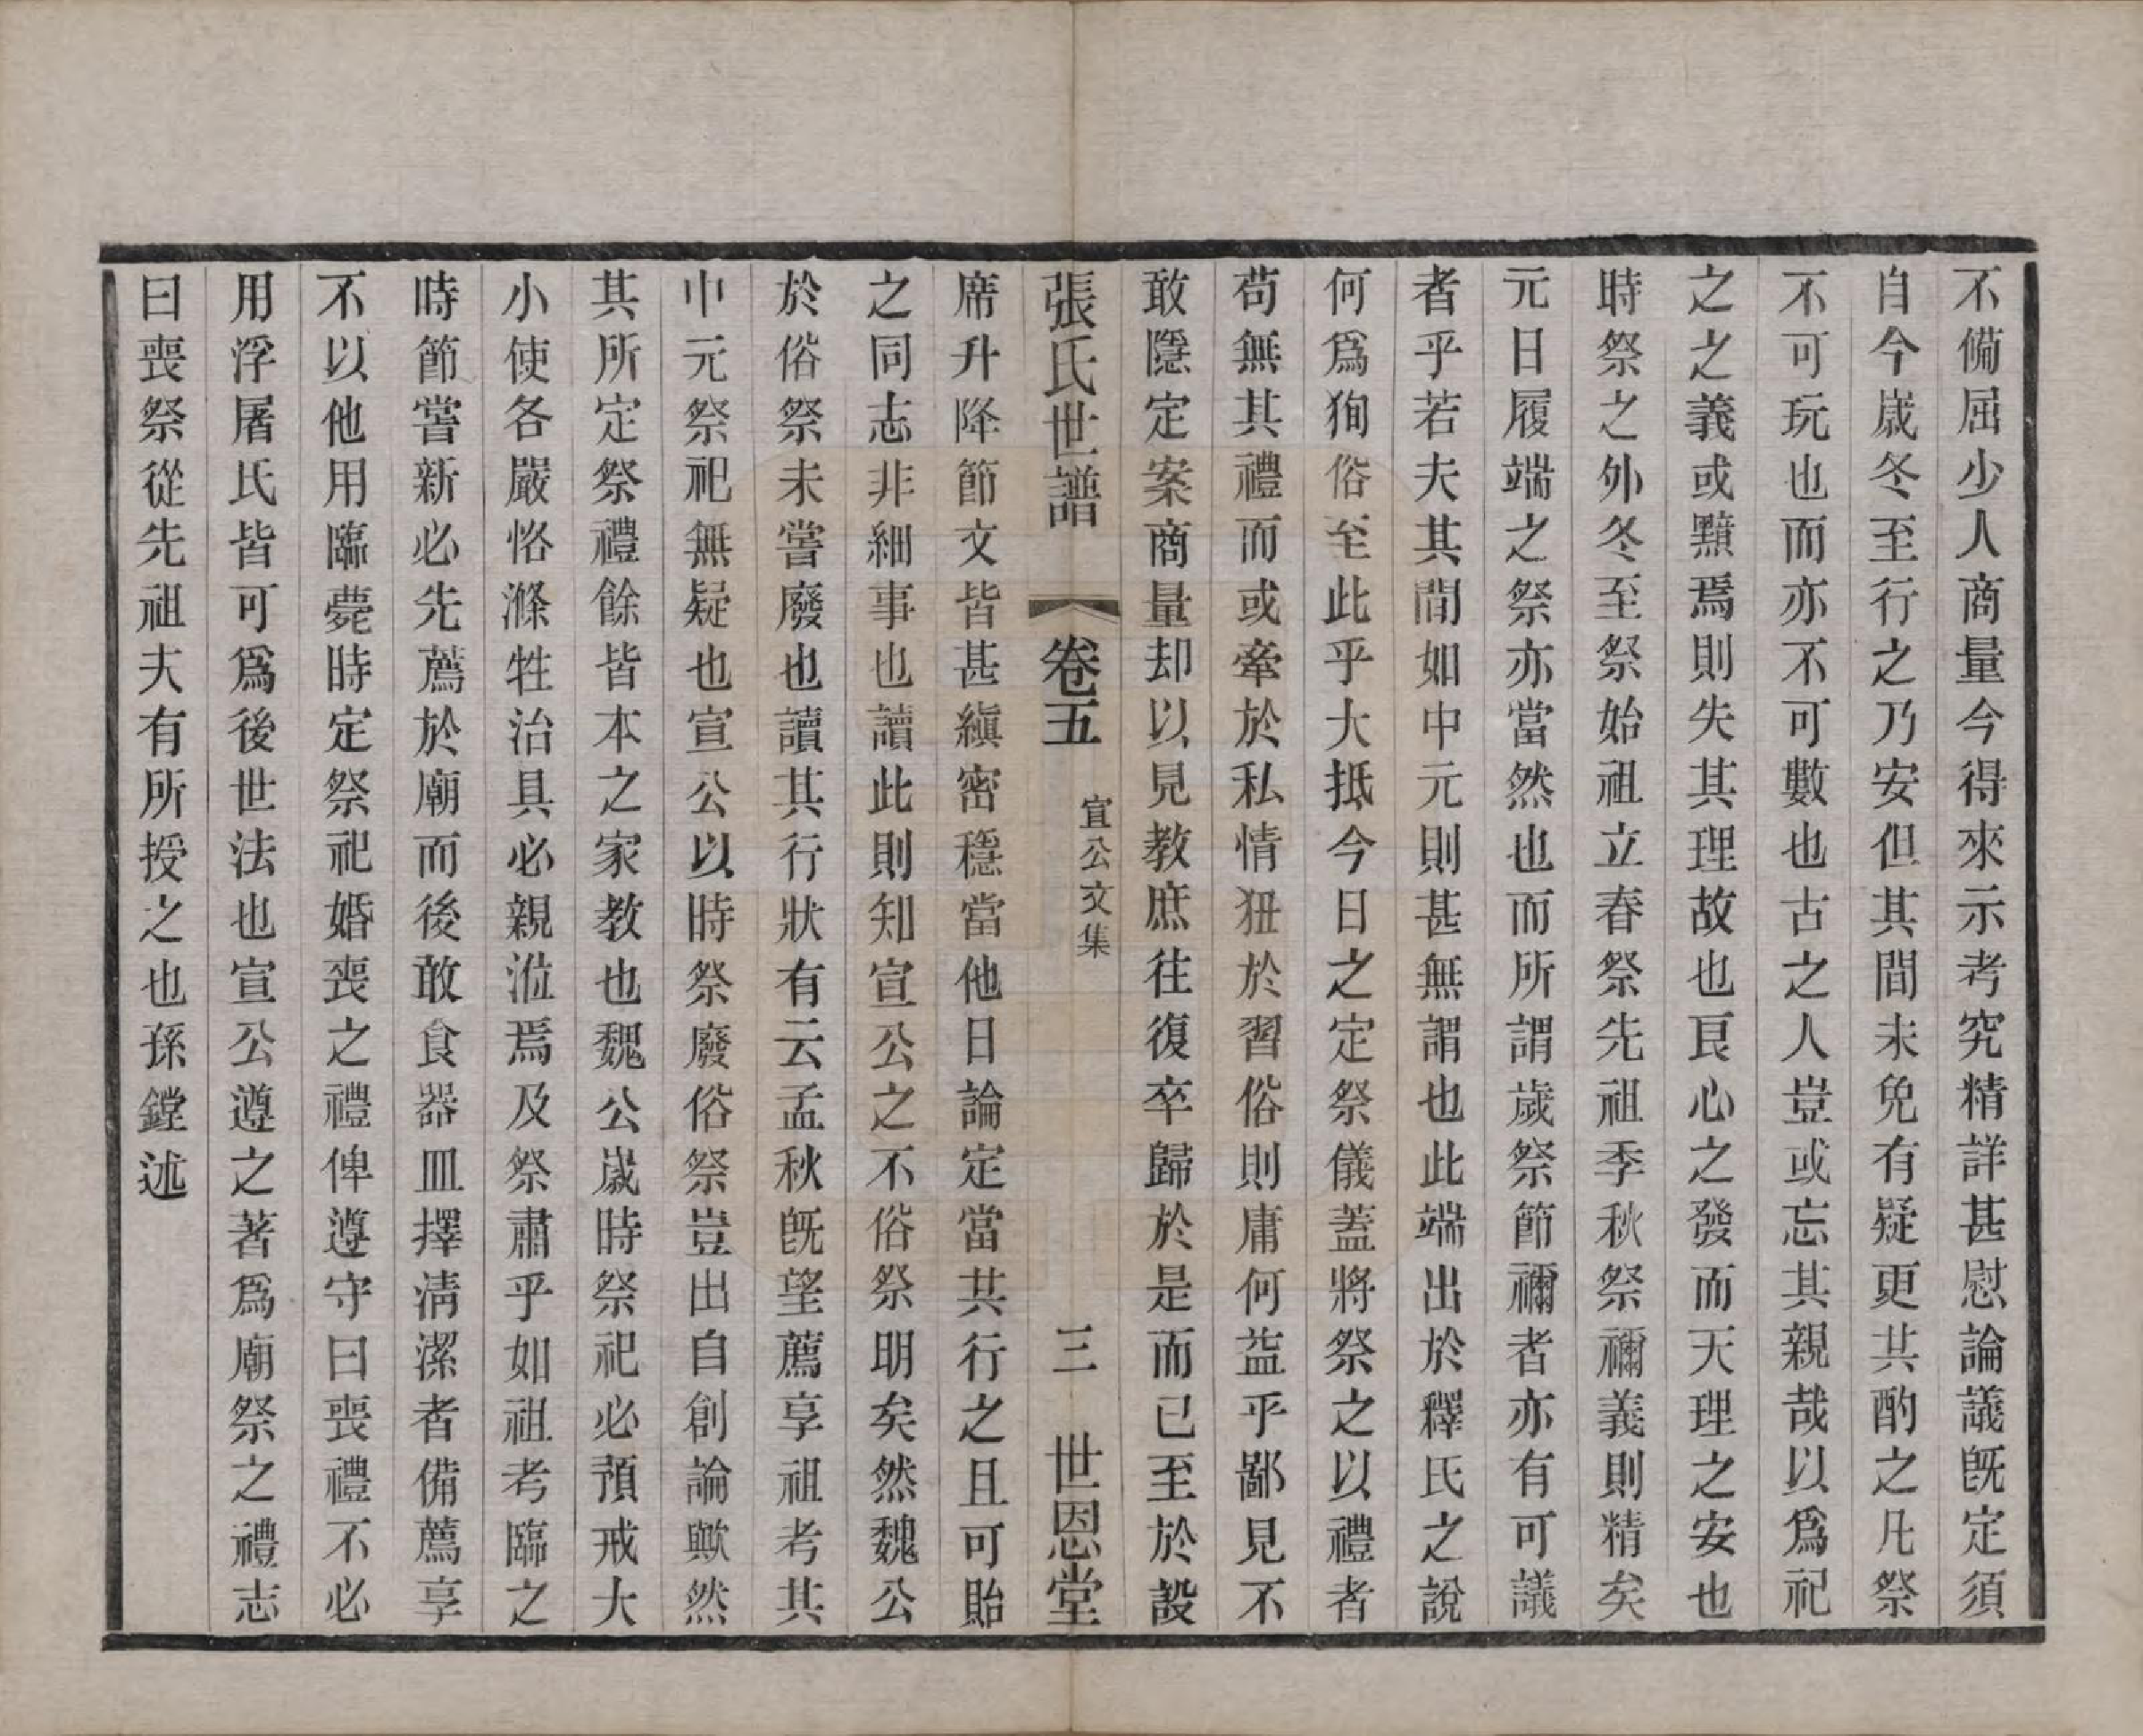 不備屈少人商量今得來示考究精詳甚慰論議旣定須
自今歲冬至行之乃安但其間未免有疑更共酌之凡祭
不可玩也而亦不可數也古之人豈或忘其親哉以爲祀
之之義或黷焉則失其理故也良心之發而天理之安也
時祭之外冬至祭始祖立春祭先祖季秋祭禰義則精矣
元日履端之祭亦當然也而所謂歲祭節禰者亦有可議
者乎若夫其間如中元則甚無謂也此端出於釋氏之說
何爲狥俗至此乎大抵今日之定祭儀蓋將祭之以禮者
苟無其禮而或牽於私情狃於習俗則庸何益乎鄙見不
敢隱定案商量却以見教庶往復卒歸於是而已至於設
張氏世譜 卷五 宣公文集 三 世恩堂
席升降節文皆甚縝密穩當他日論定當共行之且可貽
之同志非細事也讀此則知宣公之不俗祭明矣然魏公
於俗祭未嘗廢也讀其行狀有云孟秋旣望薦享祖考其
中元祭祀無疑也宣公以時祭廢俗祭豈出自創論歟然
其所定祭禮餘皆本之家教也魏公歲時祭祀必預戒大
小使各嚴恪滌牲治具必親涖焉及祭肅乎如祖考臨之
時節嘗新必先薦於廟而後敢食器皿擇淸潔者備薦享
不以他用臨薨時定祭祀婚喪之禮俾遵守曰喪禮不必
用浮屠氏皆可爲後世法也宣公遵之著爲廟祭之禮志
曰喪祭從先祖夫有所授之也孫鏜述